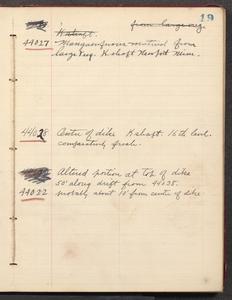 19
from large veg.
K shaft.
44027 Manganiferous material from
large veg. K shaft Newport Mine.
44028 Center of dike K shaft. 16th level.
comparatively fresh.
Altered portion at top of dike
50' along drift from 44035.
44022 probably about 10' from center of dike